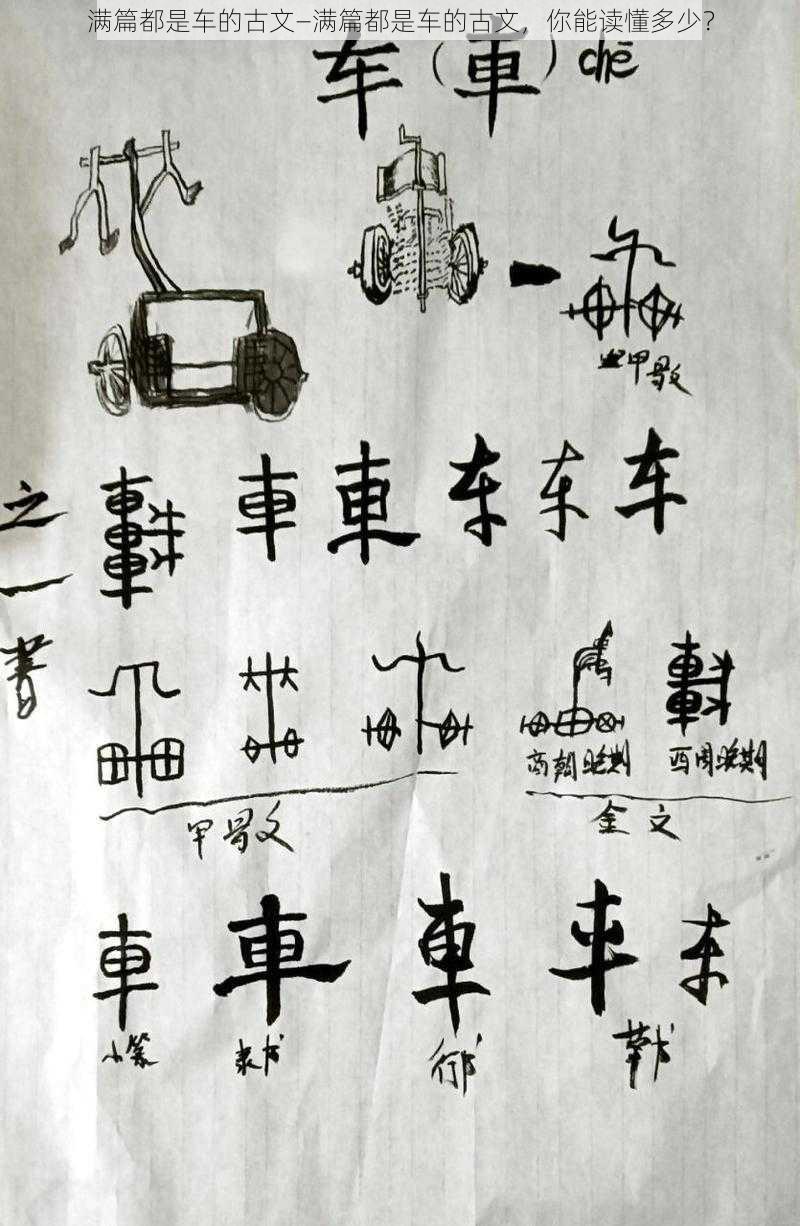 满篇都是车的古文–满篇都是车的古文，你能读懂多少？
车（車）chē
甲骨文
車 車 车 车 车
之一
商朝晚期 西周晚期
甲骨文 金文
車 車 車 车 车
小篆 隶书 行书 草书